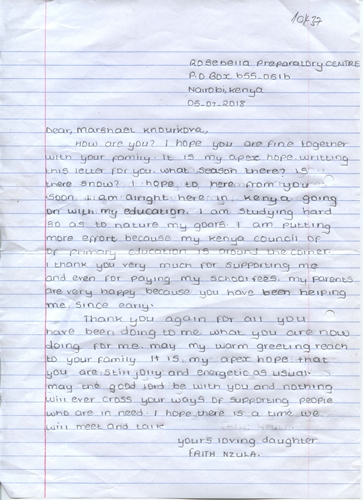 10/37
Rosebella Preparatory CENTRE
P.O Box 655-0616
Nairobi, Kenya
05-07-2018
Dear, Marshael Knourkova,
How are you? I hope you are fine together
with your family. It is my apex hope writting
this letter for you. what season there? is
there snow? I hope to here from you
soon. I am alright here in Kenya going
on with my education. I am studying hard
so as to nature my goals. I am putting
more effort because my Kenya council of
of primary education is around the corner.
I thank you very much for supporting me
and even for paying my school fees. my parents
are very happy because you have been helping
me, since early.
Thank you again for all you
have been doing to me what you are now
doing for me. may my warm greeting reach
to your family. It is my apex hope that
you are still jolly and energetic as usual.
may the good lord be with you and nothing
will ever cross your ways of supporting people
who are in need. I hope there is a time we
will meet and talk
yours loving daughter
FAITH NZULA.